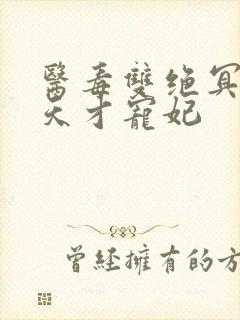 醫毒雙绝冥
天才寵妃
曾經擁有的方